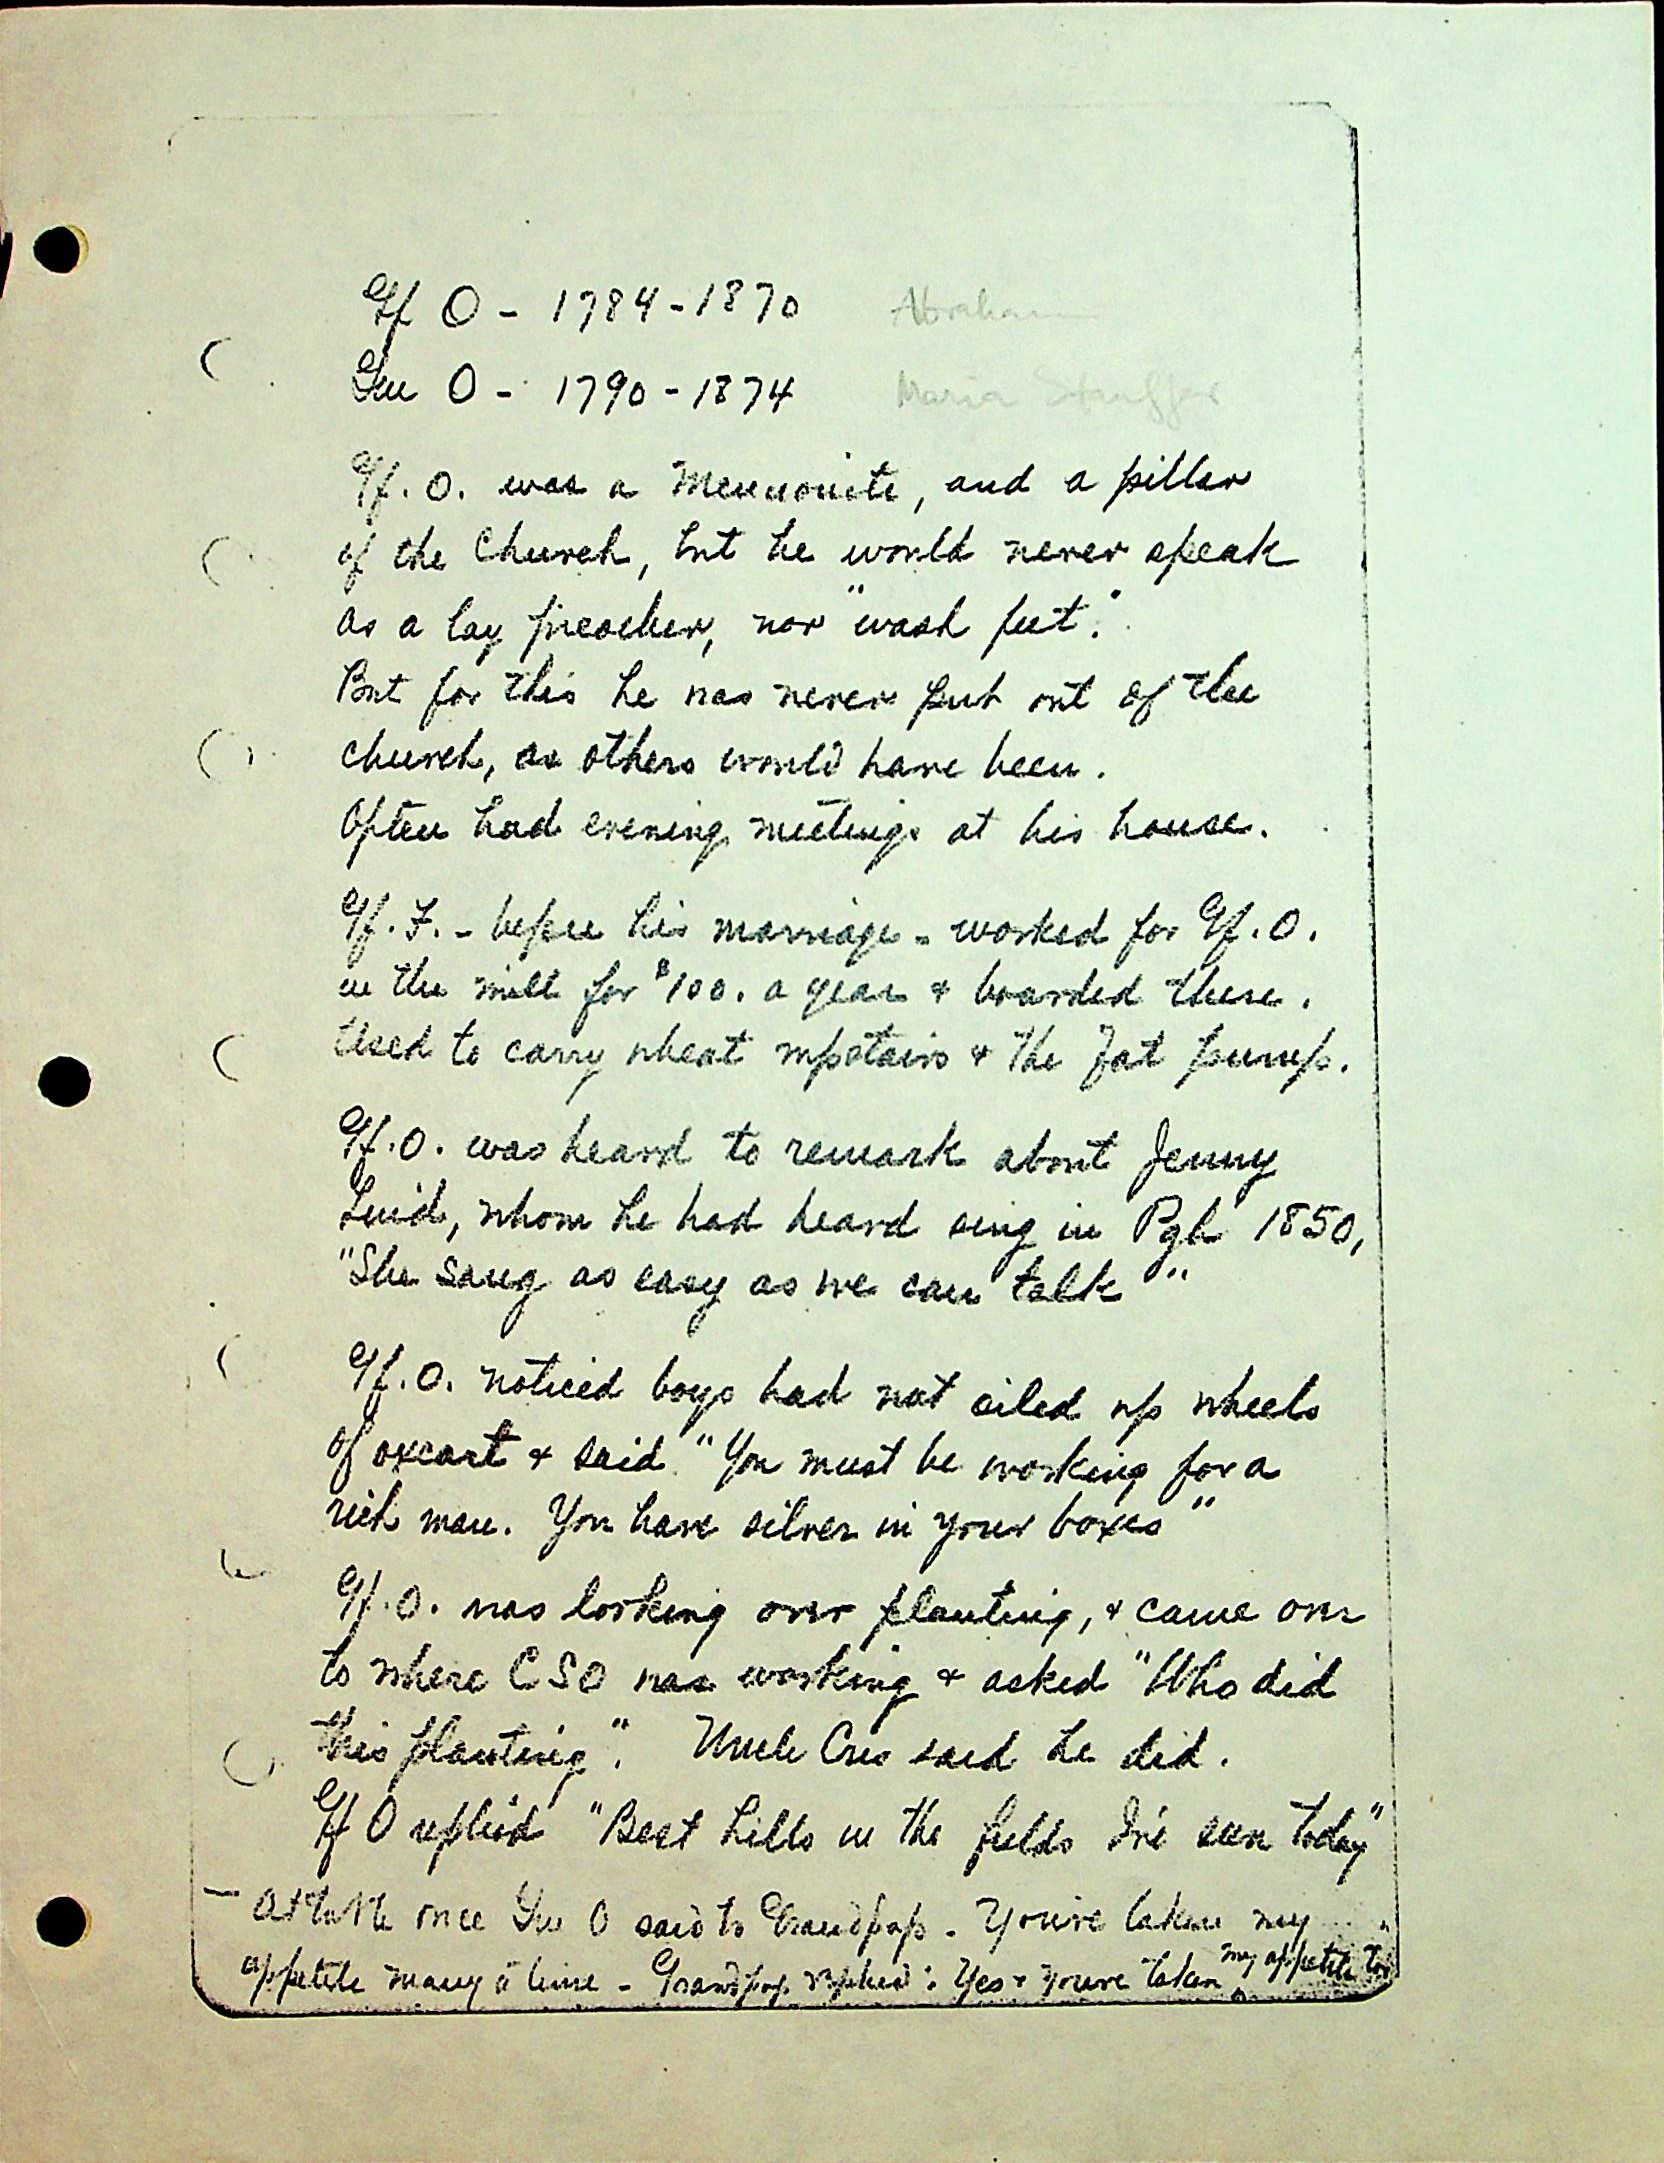 Gf O - 1784-1870 Abraham
Gm O - 1790-1874 Maria Stauffer
Gf. O. was a Mennonite, and a piller
of the Church, but he would never speak
as a lay preacher, nor "wash feet".
But for this he was never put out of the
church, as others would have been.
Often had evening meetings at his house.
Gf. F. - before his marriage - worked for Gf. O.
in the mill for $100. a year + boarded there.
Used to carry wheat upstairs + the Jat pump.
Gf. O. was heard to remark about Jenny
Lind, whom he had heard sing in Pgh 1850,
"She sang as easy as we can talk"
Gf. O. noticed boys had not oiled up wheels
of oxcart + said "You must be working for a
rich man. You have silver in your boxes"
Gf. O. was looking over planting, + came over
to where CSO was working + asked "Who did
this planting". Uncle Cris said he did.
Gf O replied "Best hills in the fields I've seen today"
- At table once Gm O said to Grandpap - You've taken my
appetite many a time - Grandpap replied: Yes + you've taken my appetite too"